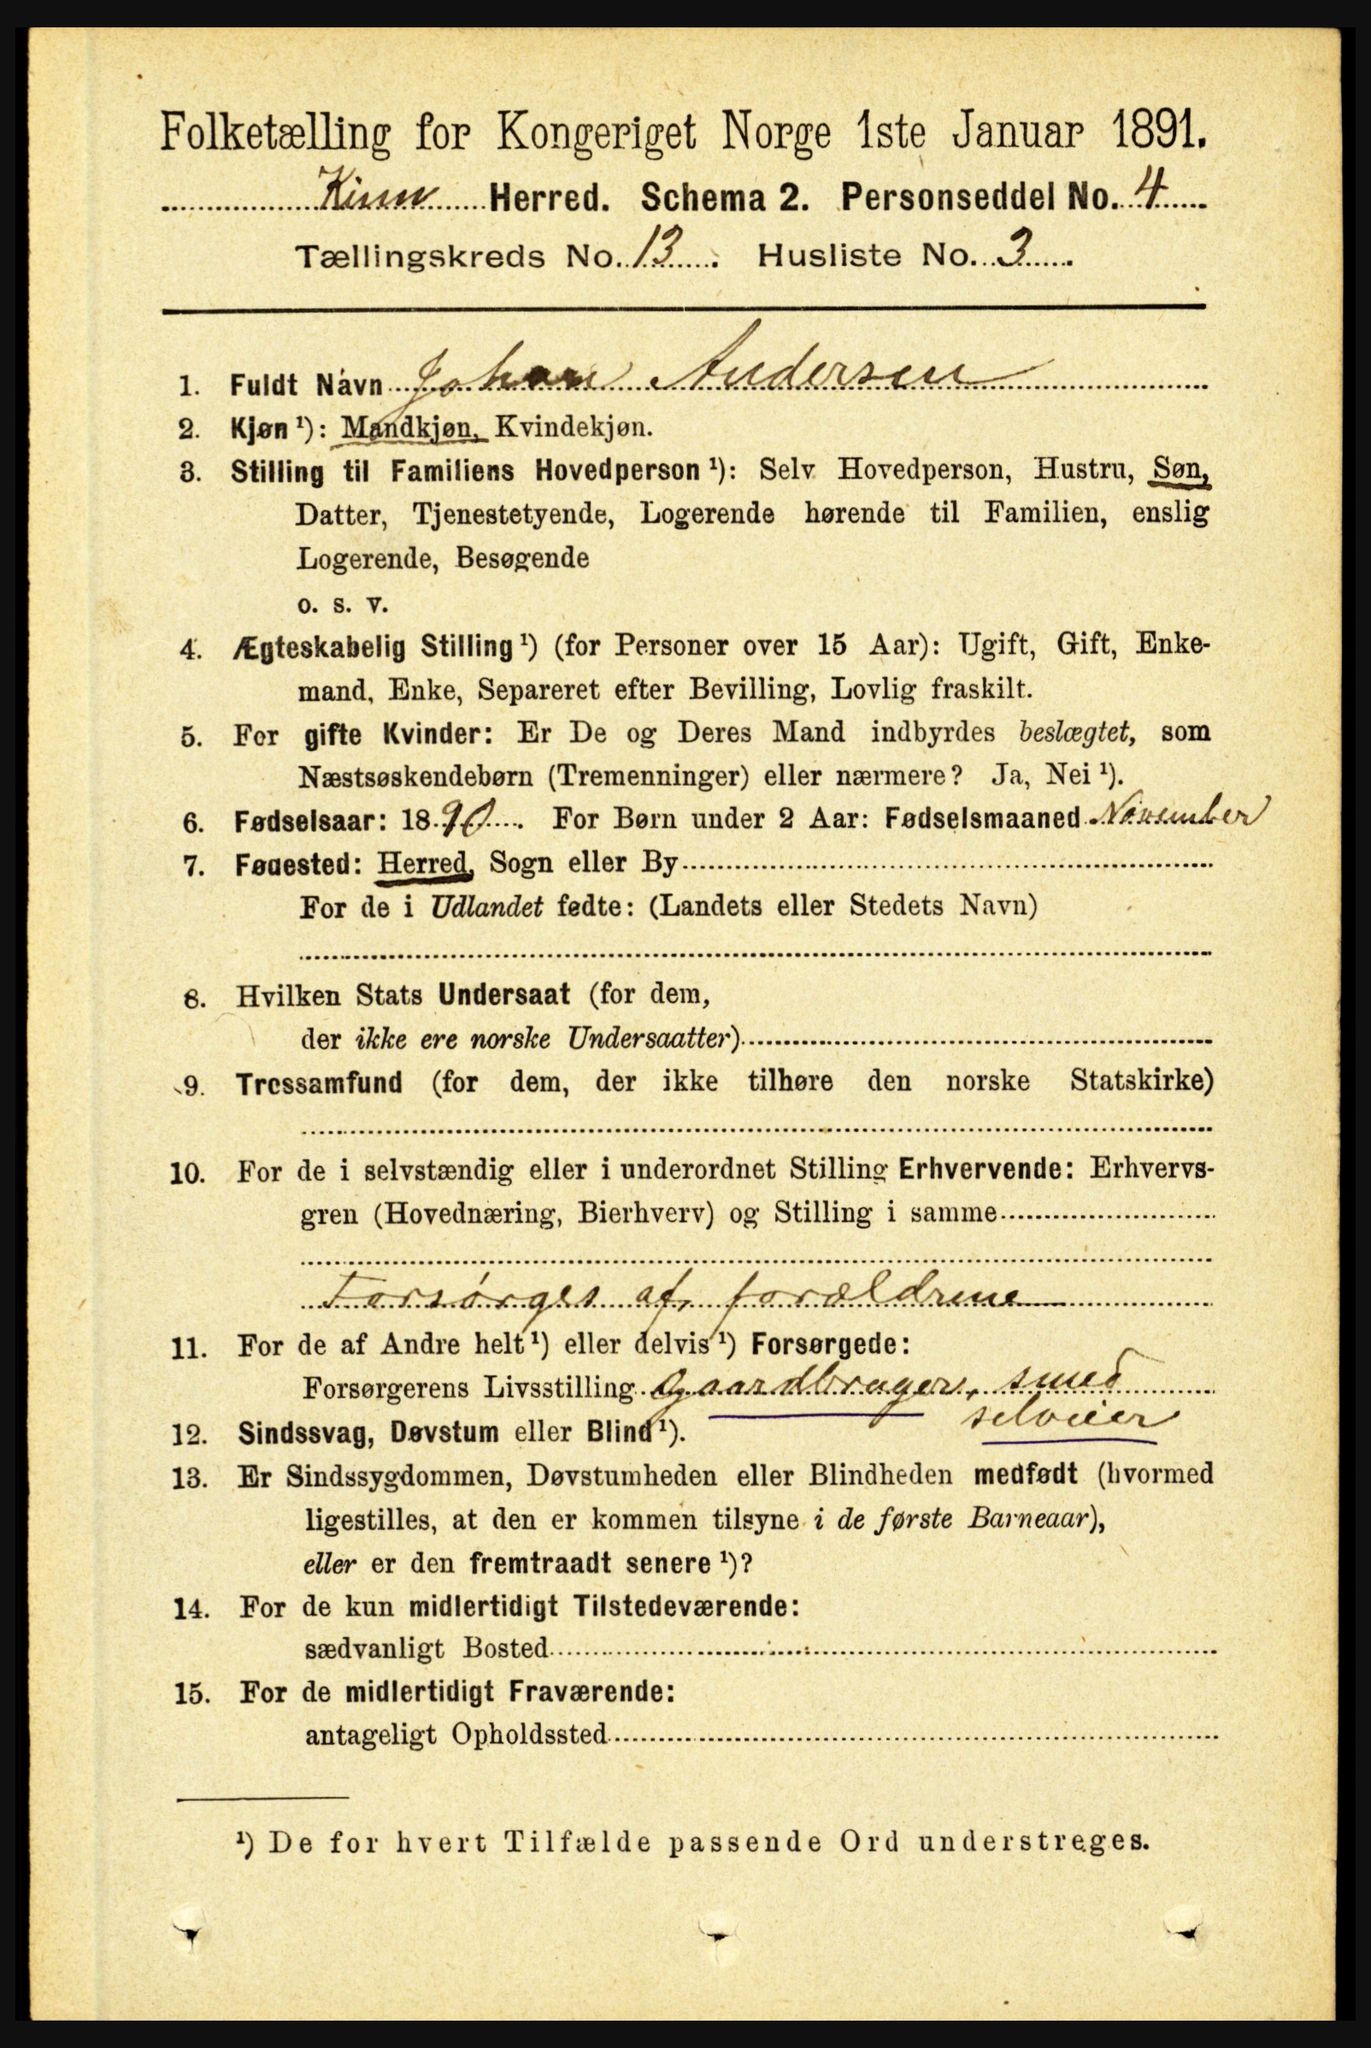 Folketælling for Kongeriget Norge 1ste Januar 1891.
Kinn Herred. Schema 2. Personseddel No. 4
Tællingskreds No. 13. Husliste No. 3
1. Fuldt Navn Johan Andersen
2. Kjøn ¹): Mandkjøn, Kvindekjøn.
3. Stilling til Familiens Hovedperson ¹): Selv Hovedperson, Hustru, Søn,
Datter, Tjenestetyende, Logerende hørende til Familien, enslig
Logerende, Besøgende
o. s. v.
4. Ægteskabelig Stilling ¹) (for Personer over 15 Aar): Ugift, Gift, Enke-
mand, Enke, Separeret efter Bevilling, Lovlig fraskilt.
5. For gifte Kvinder: Er De og Deres Mand indbyrdes beslægtet, som
Næstsøskendebørn (Tremenninger) eller nærmere? Ja, Nei ¹).
6. Fødselsaar: 1890. For Børn under 2 Aar: Fødselsmaaned November
7. Fødested: Herred, Sogn eller By
For de i Udlandet fødte: (Landets eller Stedets Navn)
8. Hvilken Stats Undersaat (for dem,
der ikke ere norske Undersaatter)
9. Trossamfund (for dem, der ikke tilhøre den norske Statskirke)
10. For de i selvstændig eller i underordnet Stilling Erhvervende: Erhvervs-
gren (Hovednæring, Bierhverv) og Stilling i samme
Forsørges af forældrene
11. For de af Andre helt ¹) eller delvis ¹) Forsørgede:
Forsørgerens Livsstilling Gaardbruger, smed
selveier
12. Sindssvag, Døvstum eller Blind ¹).
13. Er Sindssygdommen, Døvstumheden eller Blindheden medfødt (hvormed
ligestilles, at den er kommen tilsyne i de første Barneaar),
eller er den fremtraadt senere ¹)?
14. For de kun midlertidigt Tilstedeværende:
sædvanligt Bosted
15. For de midlertidigt Fraværende:
antageligt Opholdssted
¹) De for hvert Tilfælde passende Ord understreges.